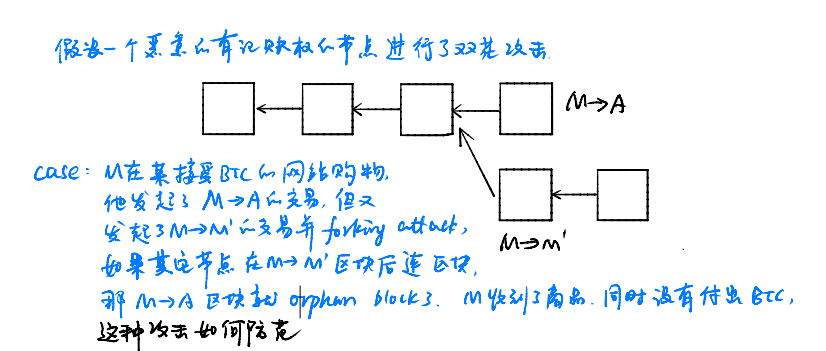 假设一个恶意的有记账权的节点进行了双花攻击.
M→A
case: M在某接受BTC的网站购物,
他发起了 M→A的交易, 但又
发起了M→M'的交易并 forking attack,
M→M'
如果其它节点在M→M'区块后连区块,
那 M→A 区块就 orphan block了. M收到了商品. 同时没有付出BTC,
这种攻击如何防范